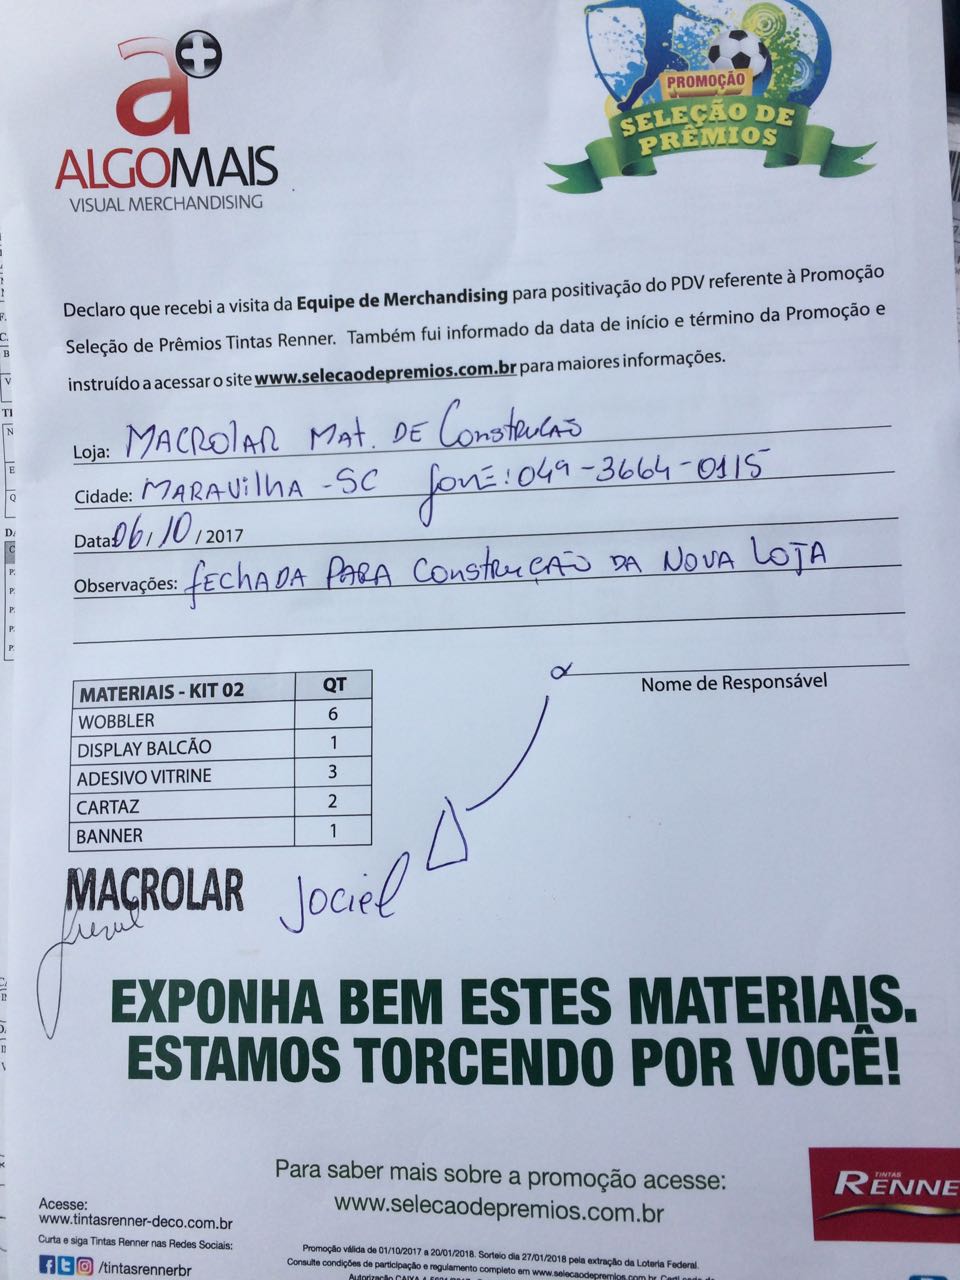 a+
ALGOMAIS
VISUAL MERCHANDISING
PROMOÇÃO
SELEÇÃO DE
PRÊMIOS
Declaro que recebi a visita da Equipe de Merchandising para positivação do PDV referente à Promoção
Seleção de Prêmios Tintas Renner. Também fui informado da data de início e término da Promoção e
instruído a acessar o site www.selecaodepremios.com.br para maiores informações.
Loja: MACROLAR MAT. DE CONSTRUCAO
Cidade: MARAVILHA - SC fone: 049-3664-0115
Data: 06/10/2017
Observações: FECHADA PARA CONSTRUÇÃO DA NOVA LOJA
Nome de Responsável
MATERIAIS - KIT 02 QT
WOBBLER 6
DISPLAY BALCÃO 1
ADESIVO VITRINE 3
CARTAZ 2
BANNER 1
MACROLAR
Jociel
EXPONHA BEM ESTES MATERIAIS.
ESTAMOS TORCENDO POR VOCÊ!
Para saber mais sobre a promoção acesse:
www.selecaodepremios.com.br
TINTAS
RENNE
Acesse:
www.tintasrenner-deco.com.br
Curta e siga Tintas Renner nas Redes Sociais:
/tintasrennerbr
Promoção válida de 01/10/2017 a 20/01/2018. Sorteio dia 27/01/2018 pela extração da Loteria Federal.
Consulte condições de participação e regulamento completo em www.selecaodepremios.com.br.
Autorização CAIXA